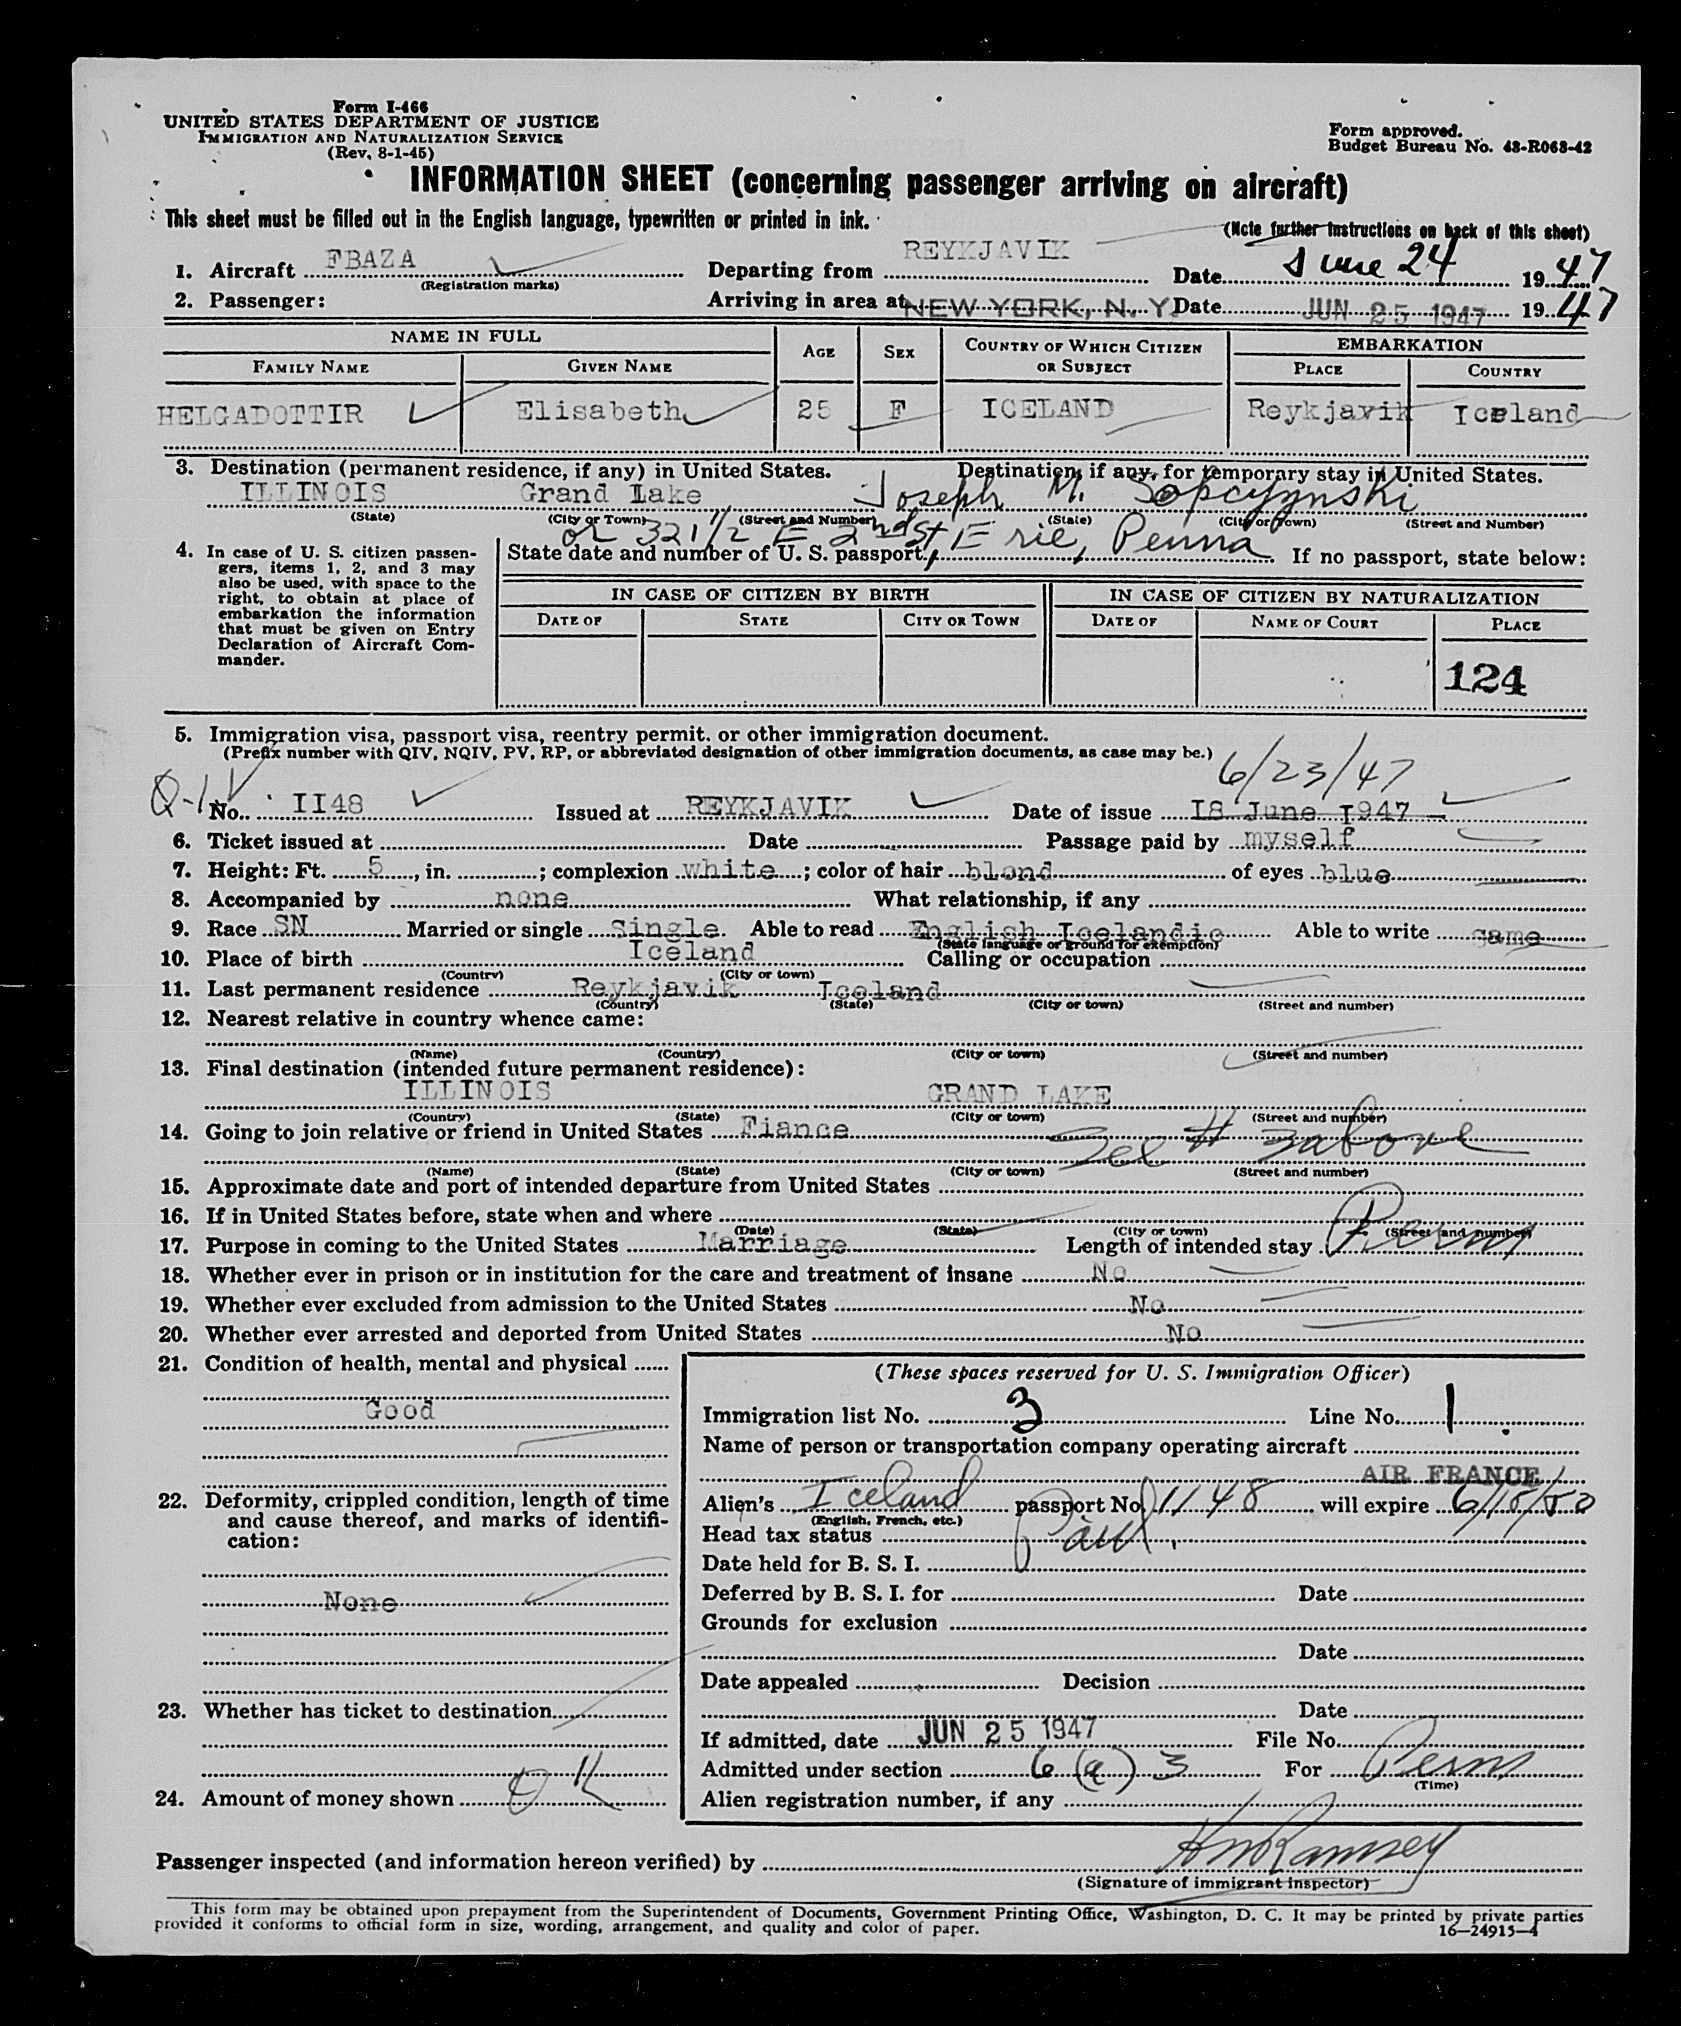 Form I-466
UNITED STATES DEPARTMENT OF JUSTICE
IMMIGRATION AND NATURALIZATION SERVICE
(Rev. 8-1-45)
Form approved.
Budget Bureau No. 43-R063-42
INFORMATION SHEET (concerning passenger arriving on aircraft)
This sheet must be filled out in the English language, typewritten or printed in ink.
(Note further instructions on back of this sheet)
1. Aircraft FBAZA Departing from REYKJAVIK Date June 24 1947
(Registration marks)
2. Passenger: Arriving in area at NEW YORK, N. Y. Date JUN 25 1947 1947
NAME IN FULL AGE SEX COUNTRY OF WHICH CITIZEN OR SUBJECT EMBARKATION
FAMILY NAME GIVEN NAME PLACE COUNTRY
HELGADOTTIR Elisabeth 25 F ICELAND Reykjavik Iceland
3. Destination (permanent residence, if any) in United States. Destination, if any, for temporary stay in United States.
ILLINOIS Grand Lake Joseph M. Sopczynski
(State) (City or Town) (Street and Number) (State) (City or Town) (Street and Number)
or 321 1/2 E 2nd St Erie, Penna
4. In case of U. S. citizen passengers, items 1, 2, and 3 may also be used, with space to the right, to obtain at place of embarkation the information that must be given on Entry Declaration of Aircraft Commander.
State date and number of U. S. passport, If no passport, state below:
IN CASE OF CITIZEN BY BIRTH IN CASE OF CITIZEN BY NATURALIZATION
DATE OF STATE CITY OR TOWN DATE OF NAME OF COURT PLACE
124
5. Immigration visa, passport visa, reentry permit, or other immigration document.
(Prefix number with QIV, NQIV, PV, RP, or abbreviated designation of other immigration documents, as case may be.)
6/23/47
Q-IV No. II48 Issued at REYKJAVIK Date of issue I8 June I947
6. Ticket issued at Date Passage paid by myself
7. Height: Ft. 5, in. ; complexion white; color of hair blond of eyes blue
8. Accompanied by none What relationship, if any
9. Race SN Married or single Single. Able to read English Icelandic Able to write same
(State language or ground for exemption)
10. Place of birth Iceland Calling or occupation
(Country) (City or town)
11. Last permanent residence Reykjavik Iceland
(Country) (State) (City or town) (Street and number)
12. Nearest relative in country whence came:
(Name) (Country) (City or town) (Street and number)
13. Final destination (intended future permanent residence):
ILLINOIS GRAND LAKE
(Country) (State) (City or town) (Street and number)
14. Going to join relative or friend in United States Fiance
See # 3 above
(Name) (State) (City or town) (Street and number)
15. Approximate date and port of intended departure from United States
16. If in United States before, state when and where
(Date) (State) (City or town) (Street and number)
17. Purpose in coming to the United States Marriage Length of intended stay Perm
18. Whether ever in prison or in institution for the care and treatment of insane No
19. Whether ever excluded from admission to the United States No
20. Whether ever arrested and deported from United States No
21. Condition of health, mental and physical
Good
22. Deformity, crippled condition, length of time and cause thereof, and marks of identification:
None
23. Whether has ticket to destination
24. Amount of money shown OK
(These spaces reserved for U. S. Immigration Officer)
Immigration list No. 3 Line No. 1
Name of person or transportation company operating aircraft
AIR FRANCE
Alien's Iceland passport No. 1148 will expire 6/18/50
(English, French, etc.)
Head tax status Paid
Date held for B. S. I.
Deferred by B. S. I. for Date
Grounds for exclusion
Date
Date appealed Decision
Date
If admitted, date JUN 25 1947 File No.
Admitted under section 6 (a) 3 For Perm
(Time)
Alien registration number, if any
Passenger inspected (and information hereon verified) by HM Ramsey
(Signature of immigrant inspector)
This form may be obtained upon prepayment from the Superintendent of Documents, Government Printing Office, Washington, D. C. It may be printed by private parties
provided it conforms to official form in size, wording, arrangement, and quality and color of paper.
16—24915-4